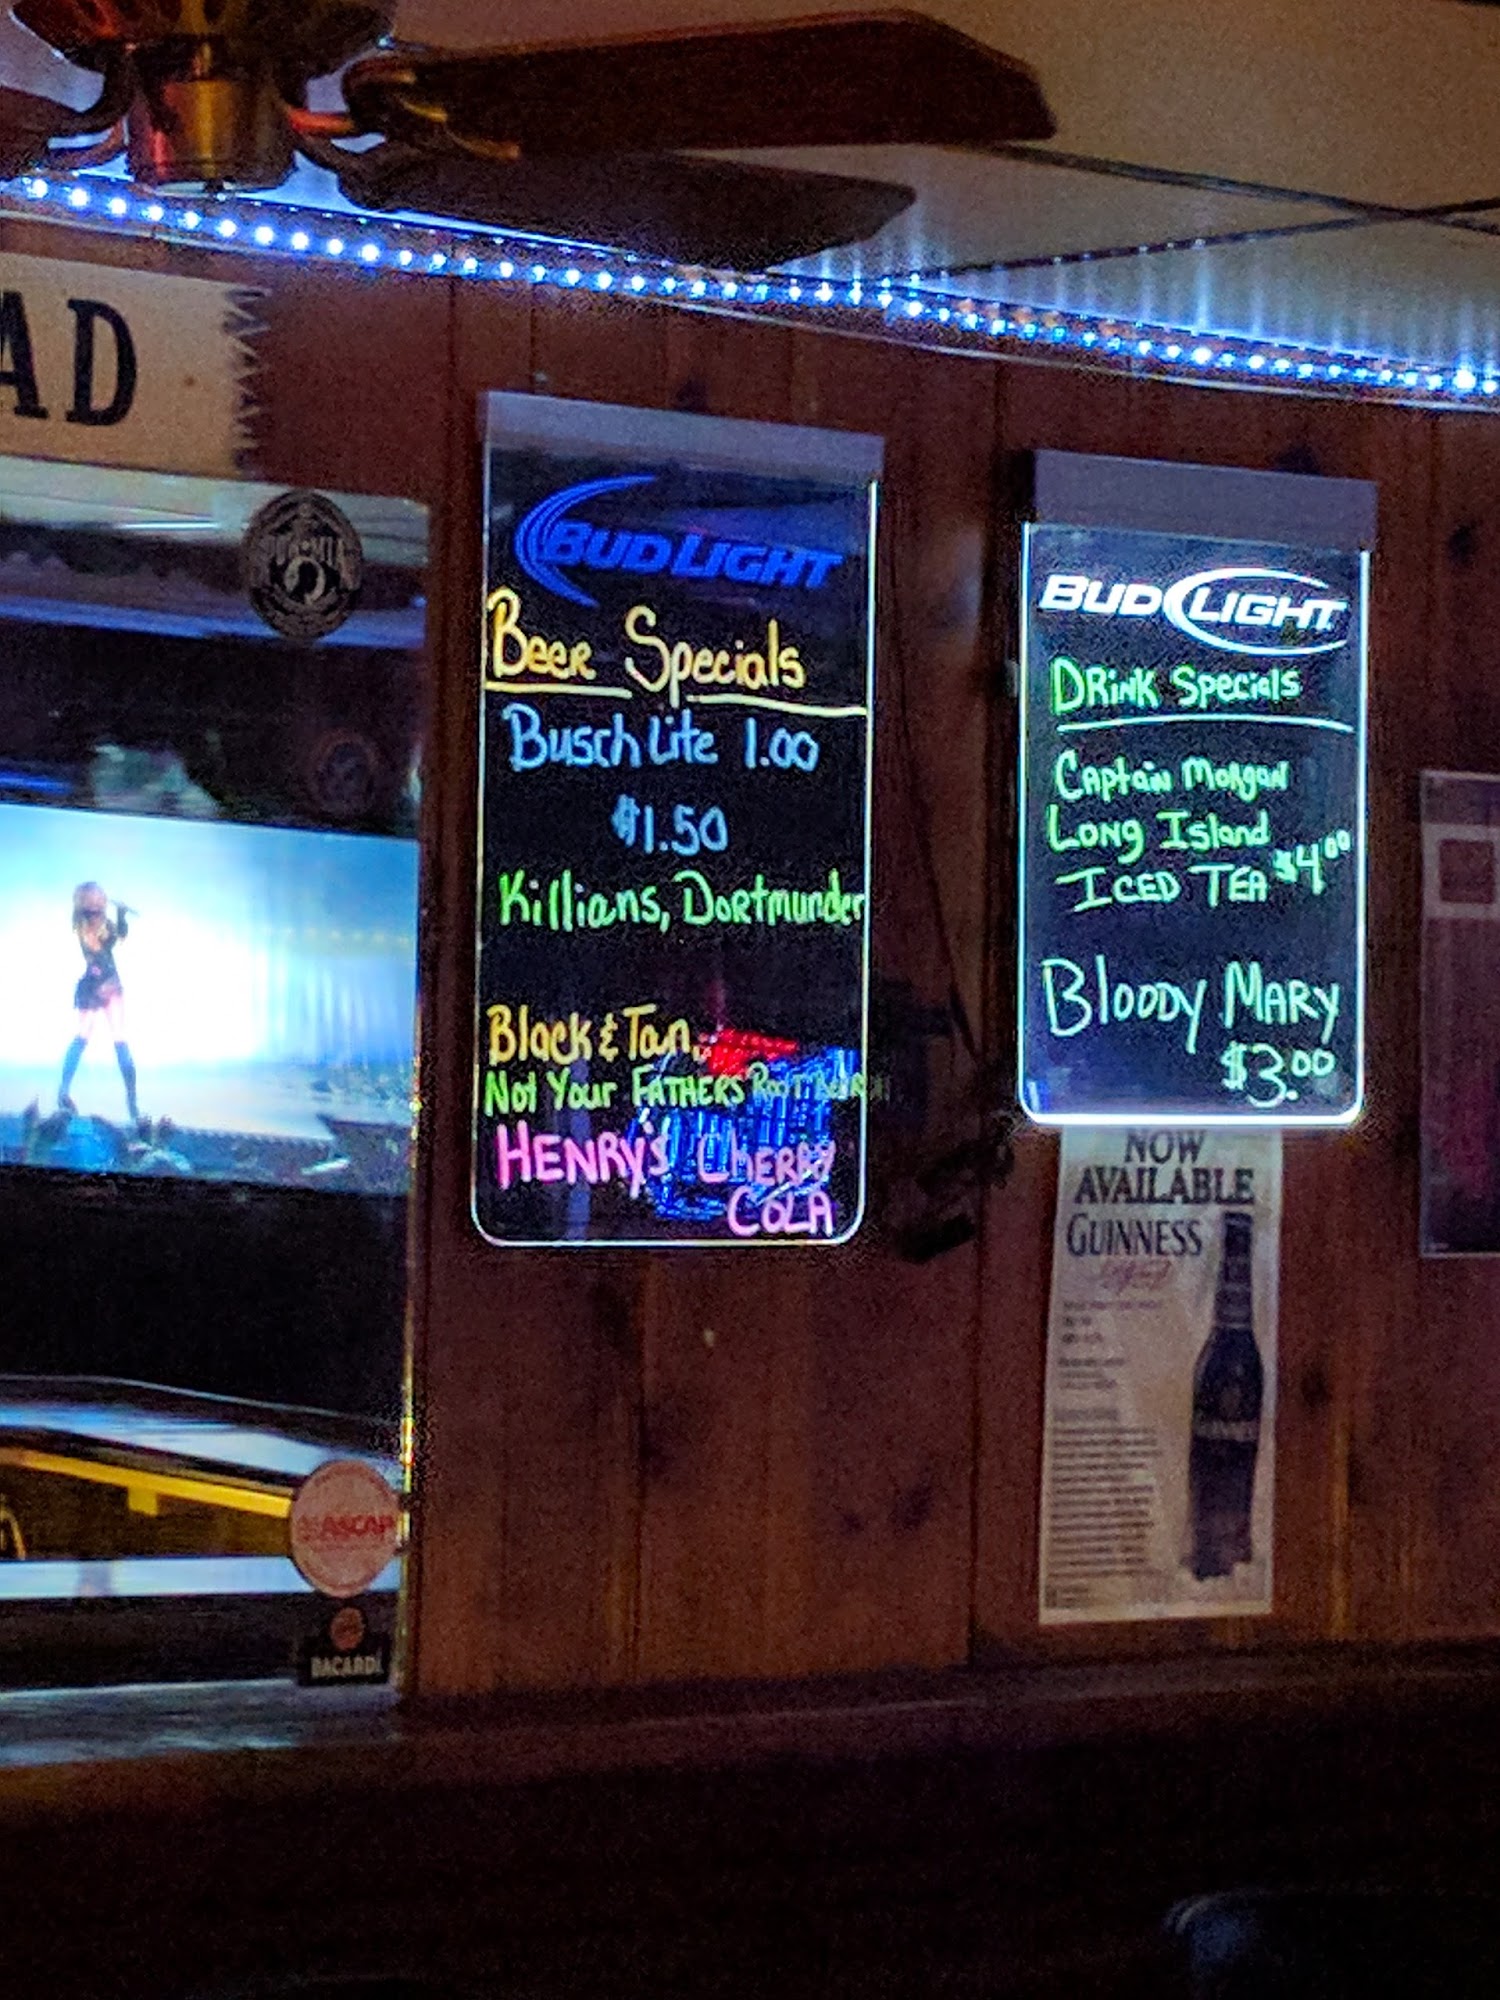 AD
BUD LIGHT
Beer Specials
Busch Lite 1.00
$1.50
Killians, Dortmunder
Black & Tan,
Not Your Fathers Root Beer
Henry's Cherry
Cola
BUD LIGHT
Drink Specials
Captain Morgan
Long Island
Iced Tea $4.00
Bloody Mary
$3.00
NOW
AVAILABLE
GUINNESS
POW MIA
ASCAP
BACARDI